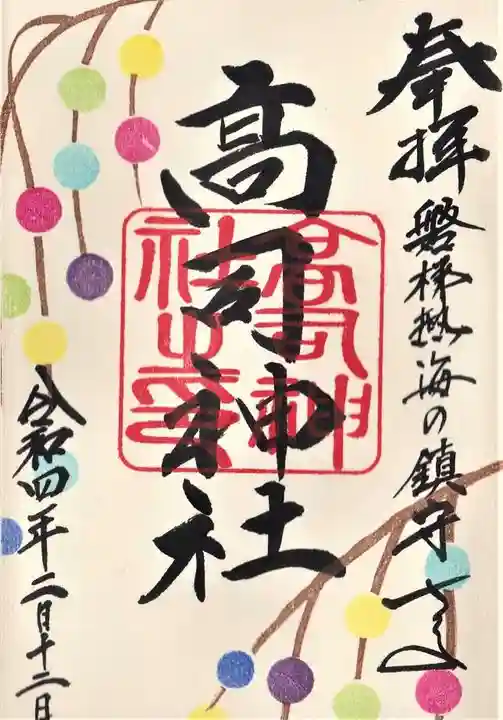 奉拝
磐梯熱海の鎮守さま
高司神社
高司神社之印
令和四年二月十二日